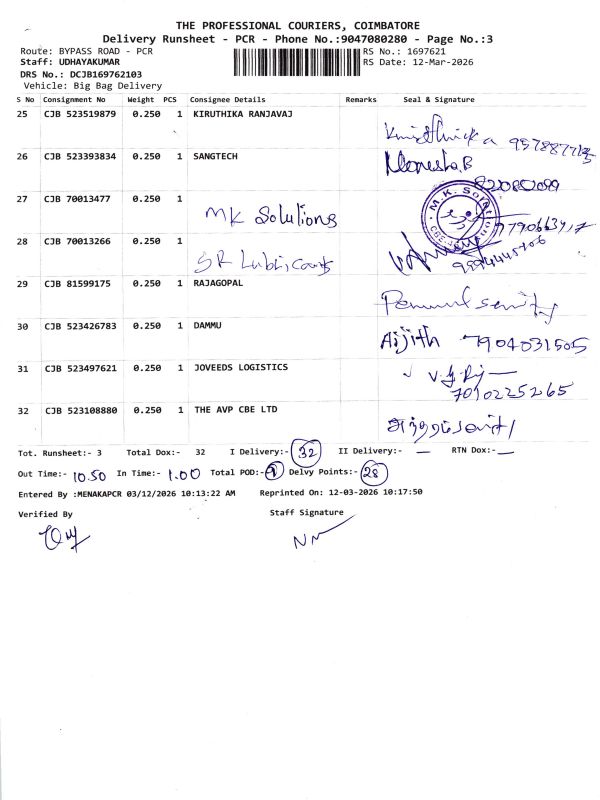 THE PROFESSIONAL COURIERS, COIMBATORE
Delivery Runsheet - PCR - Phone No.:9047080280 - Page No.:3
Route: BYPASS ROAD - PCR
RS No.: 1697621
Staff: UDHAYAKUMAR
RS Date: 12-Mar-2026
DRS No.: DCJB169762103
Vehicle: Big Bag Delivery
S No Consignment No Weight PCS Consignee Details Remarks Seal & Signature
25 CJB 523519879 0.250 1 KIRUTHIKA RANJAVAJ
26 CJB 523393834 0.250 1 SANGTECH
27 CJB 70013477 0.250 1 MK Solutions
28 CJB 70013266 0.250 1 SR
29 CJB 81599175 0.250 1 RAJAGOPAL
30 CJB 523426783 0.250 1 DAMMU Aijith 7904031505
31 CJB 523497621 0.250 1 JOVEEDS LOGISTICS 7010225265
32 CJB 523108880 0.250 1 THE AVP CBE LTD
Tot. Runsheet:- 3 Total Dox:- 32 I Delivery:- 32 II Delivery:- — RTN Dox:- —
Out Time:- 10.50 In Time:- 1.00 Total POD:- Delvy Points:- 28
Entered By :MENAKAPCR 03/12/2026 10:13:22 AM Reprinted On: 12-03-2026 10:17:50
Verified By Staff Signature